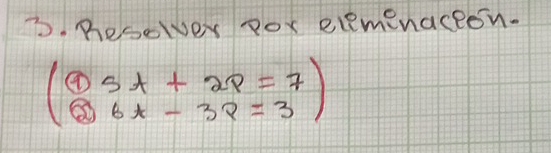 3. Resolver por eliminación.
① 5x + 2p = 7
② 6x - 3p = 3